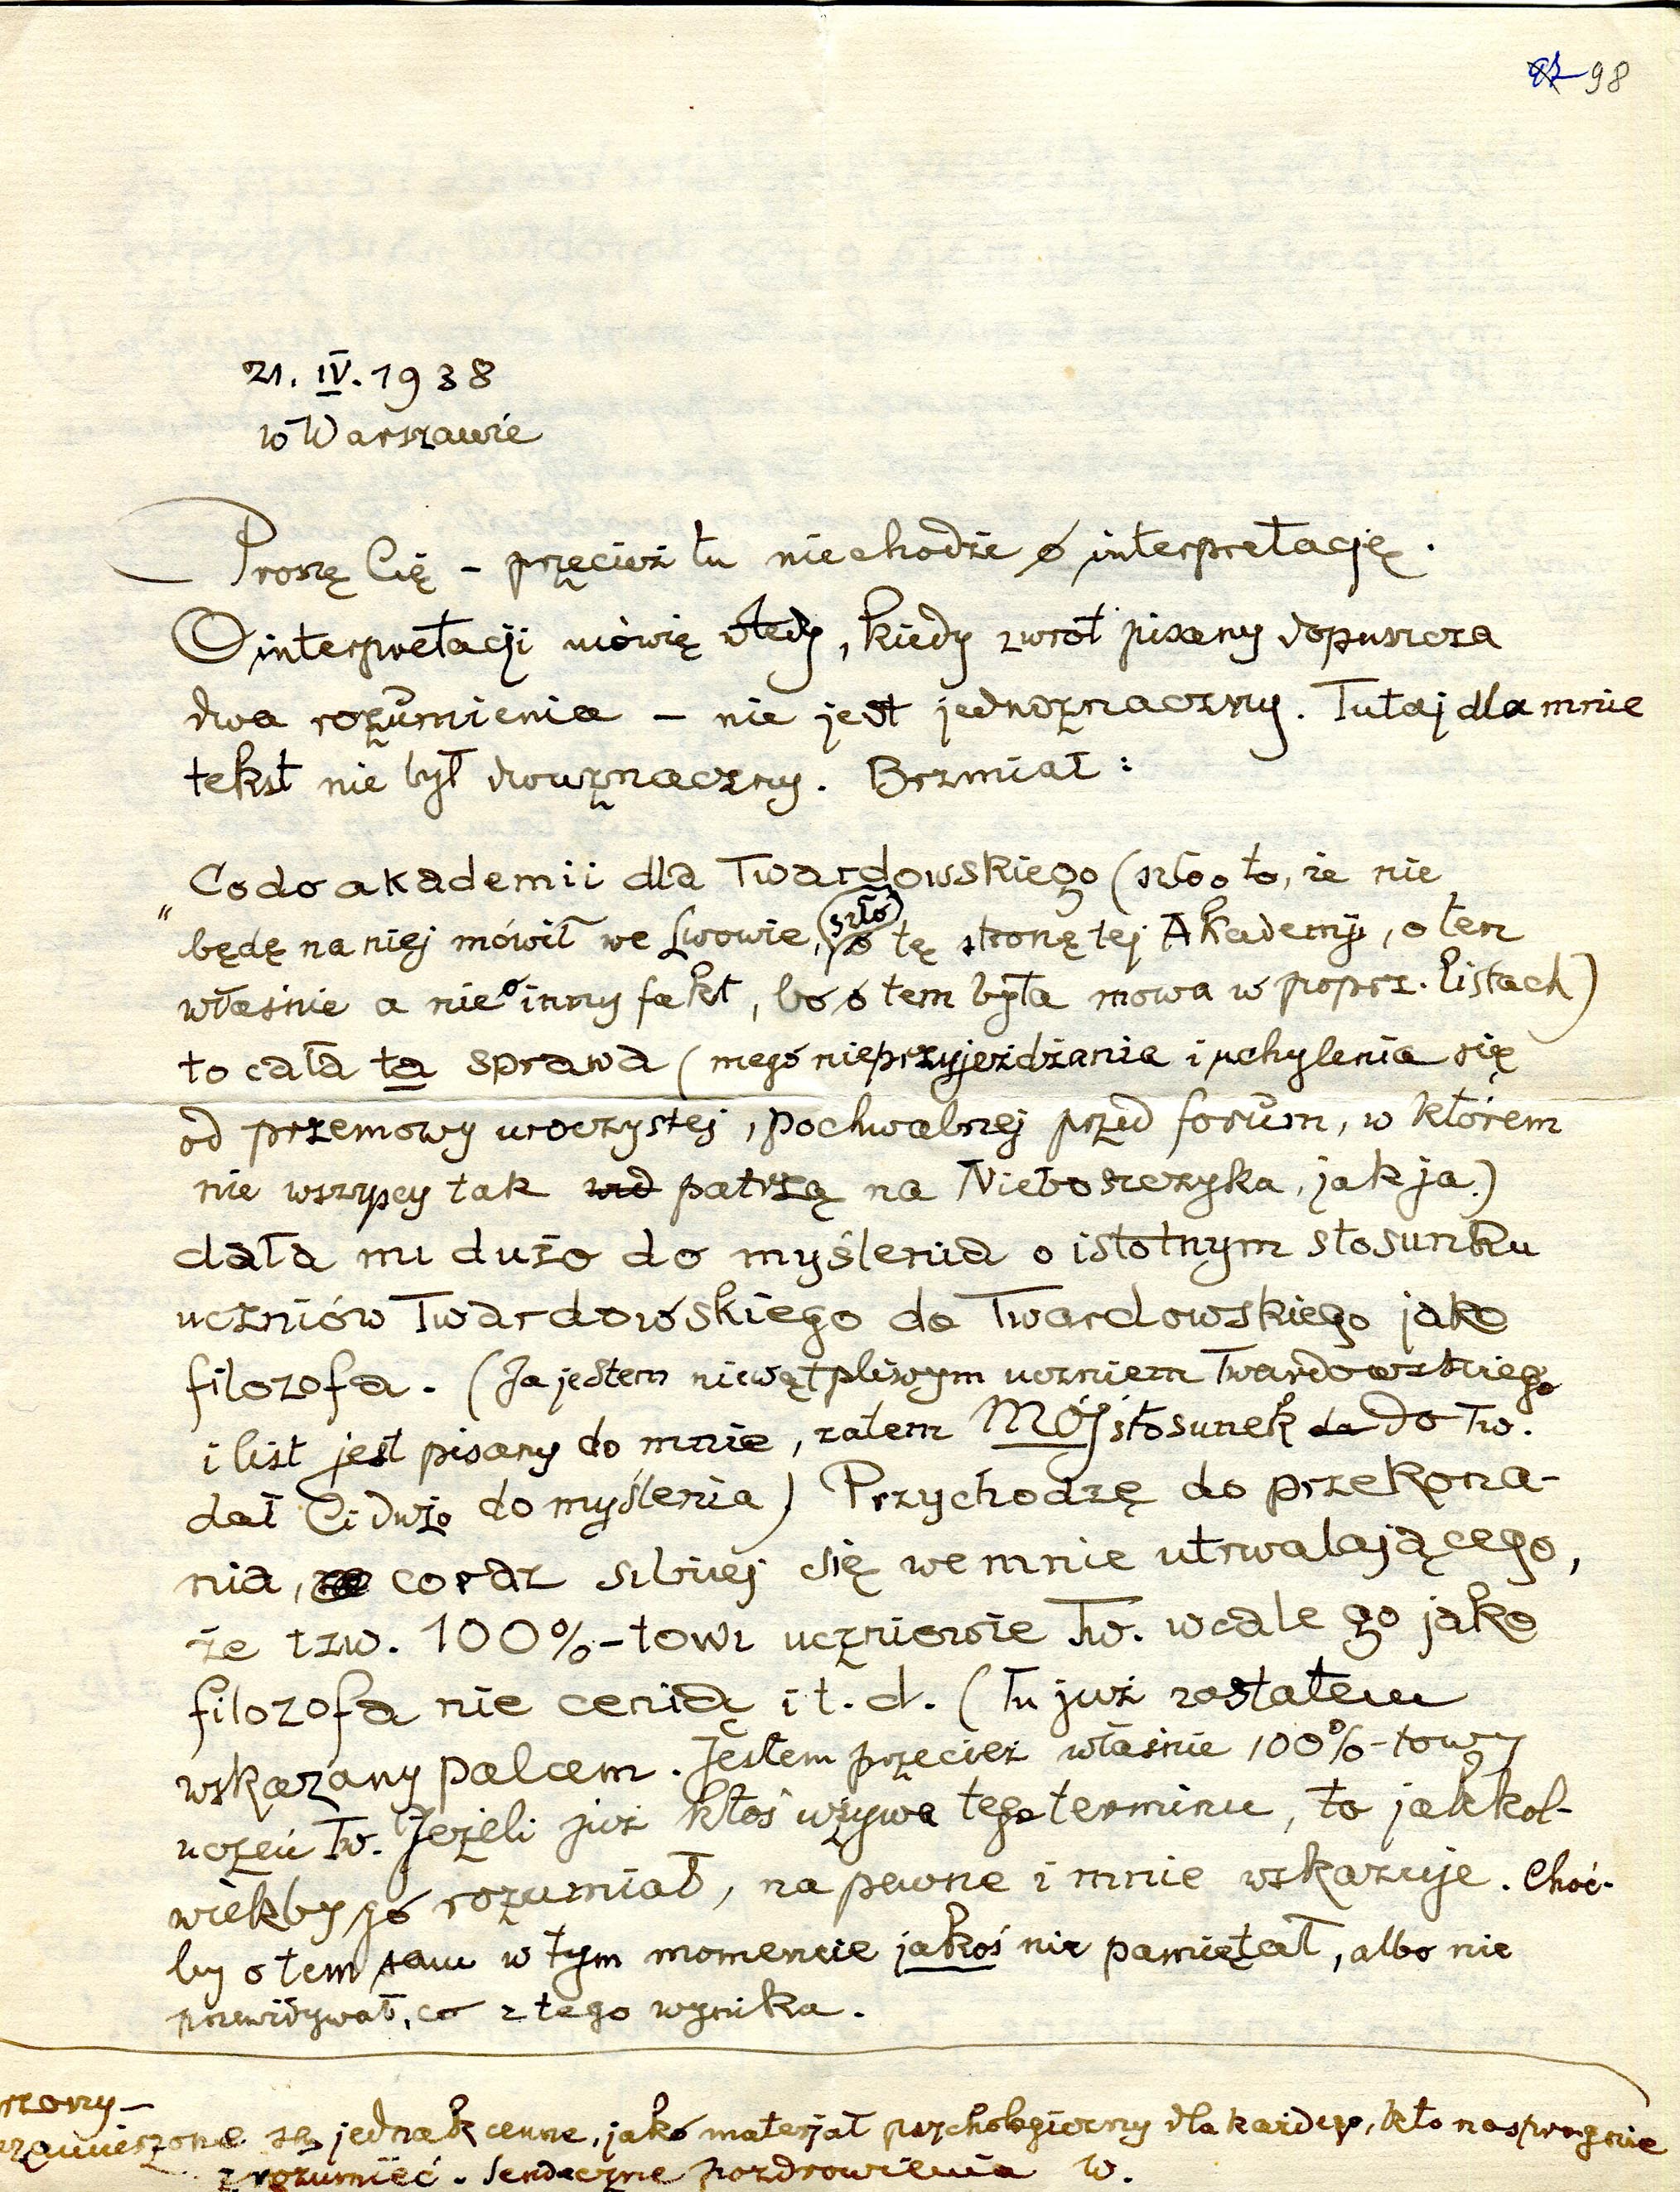 98
21. IV. 1938
w Warszawie
Proszę Cię - przecież tu niechodzie o interpretację.
O interpretacji mówię wtedy, kiedy zwrot pisany dopuszcza
dwa rozumienia - nie jest jednoznaczny. Tutaj dla mnie
tekst nie był dwuznaczny. Brzmiał:
"Co do akademii dla Twardowskiego (szło o to, że nie
będę na niej mówił we Lwowie, szło o tę stronę tej Akademji, o ten
właśnie a nie o inny fakt, bo o tem była mowa w poprz. listach)
to cała ta sprawa (mego nieprzyjeżdżania i uchylenia się
od przemowy uroczystej, pochwalnej przed forum, w którem
nie wszyscy tak patrzą na Nieboszczyka, jak ja.)
dała mi dużo do myślenia o istotnym stosunku
uczniów Twardowskiego do Twardowskiego jako
filozofa. (Ja jestem niewątpliwym uczniem Twardowskiego
i list jest pisany do mnie, zatem MÓJ stosunek do Tw.
dał Ci dużo do myślenia) Przychodzę do przekona-
nia, coraz silniej się we mnie utrwalającego,
że tzw. 100%-towi uczniowie Tw. wcale go jako
filozofa nie cenią i t. d. (Tu już zostałem
wskazany palcem. Jestem przecież właśnie 100%-towy
uczeń Tw. Jeżeli już ktoś używa tego terminu, to jakkol-
wiekby go rozumiał, na pewne i mnie wskazuje. Choć-
by o tem sam w tym momencie jakoś nie pamiętał, albo nie
przewidywał, co z tego wynika.
są jednak cenne, jako materjał psychologiczny dla każdego, kto nas pragnie
zrozumieć. Serdeczne pozdrowienia W.